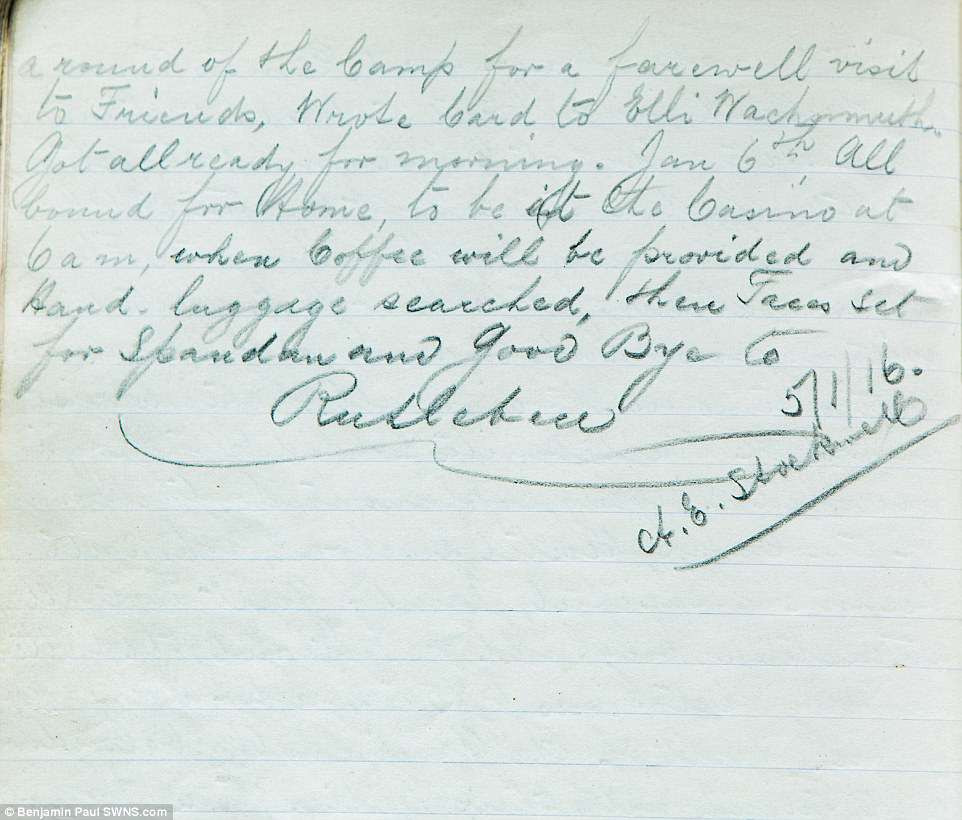 a round of the Camp for a farewell visit
to Friends, Wrote Card to Elli Wachsmuth.
Got all ready for morning. Jan 6th, All
bound for Home, to be at the Casino at
6 am, when Coffee will be provided and
Hand luggage searched, then Faces set
for Spandau and Good Bye to
Ruhleben
5/1/16.
A. E. Stockwell
© Benjamin Paul SWNS.com